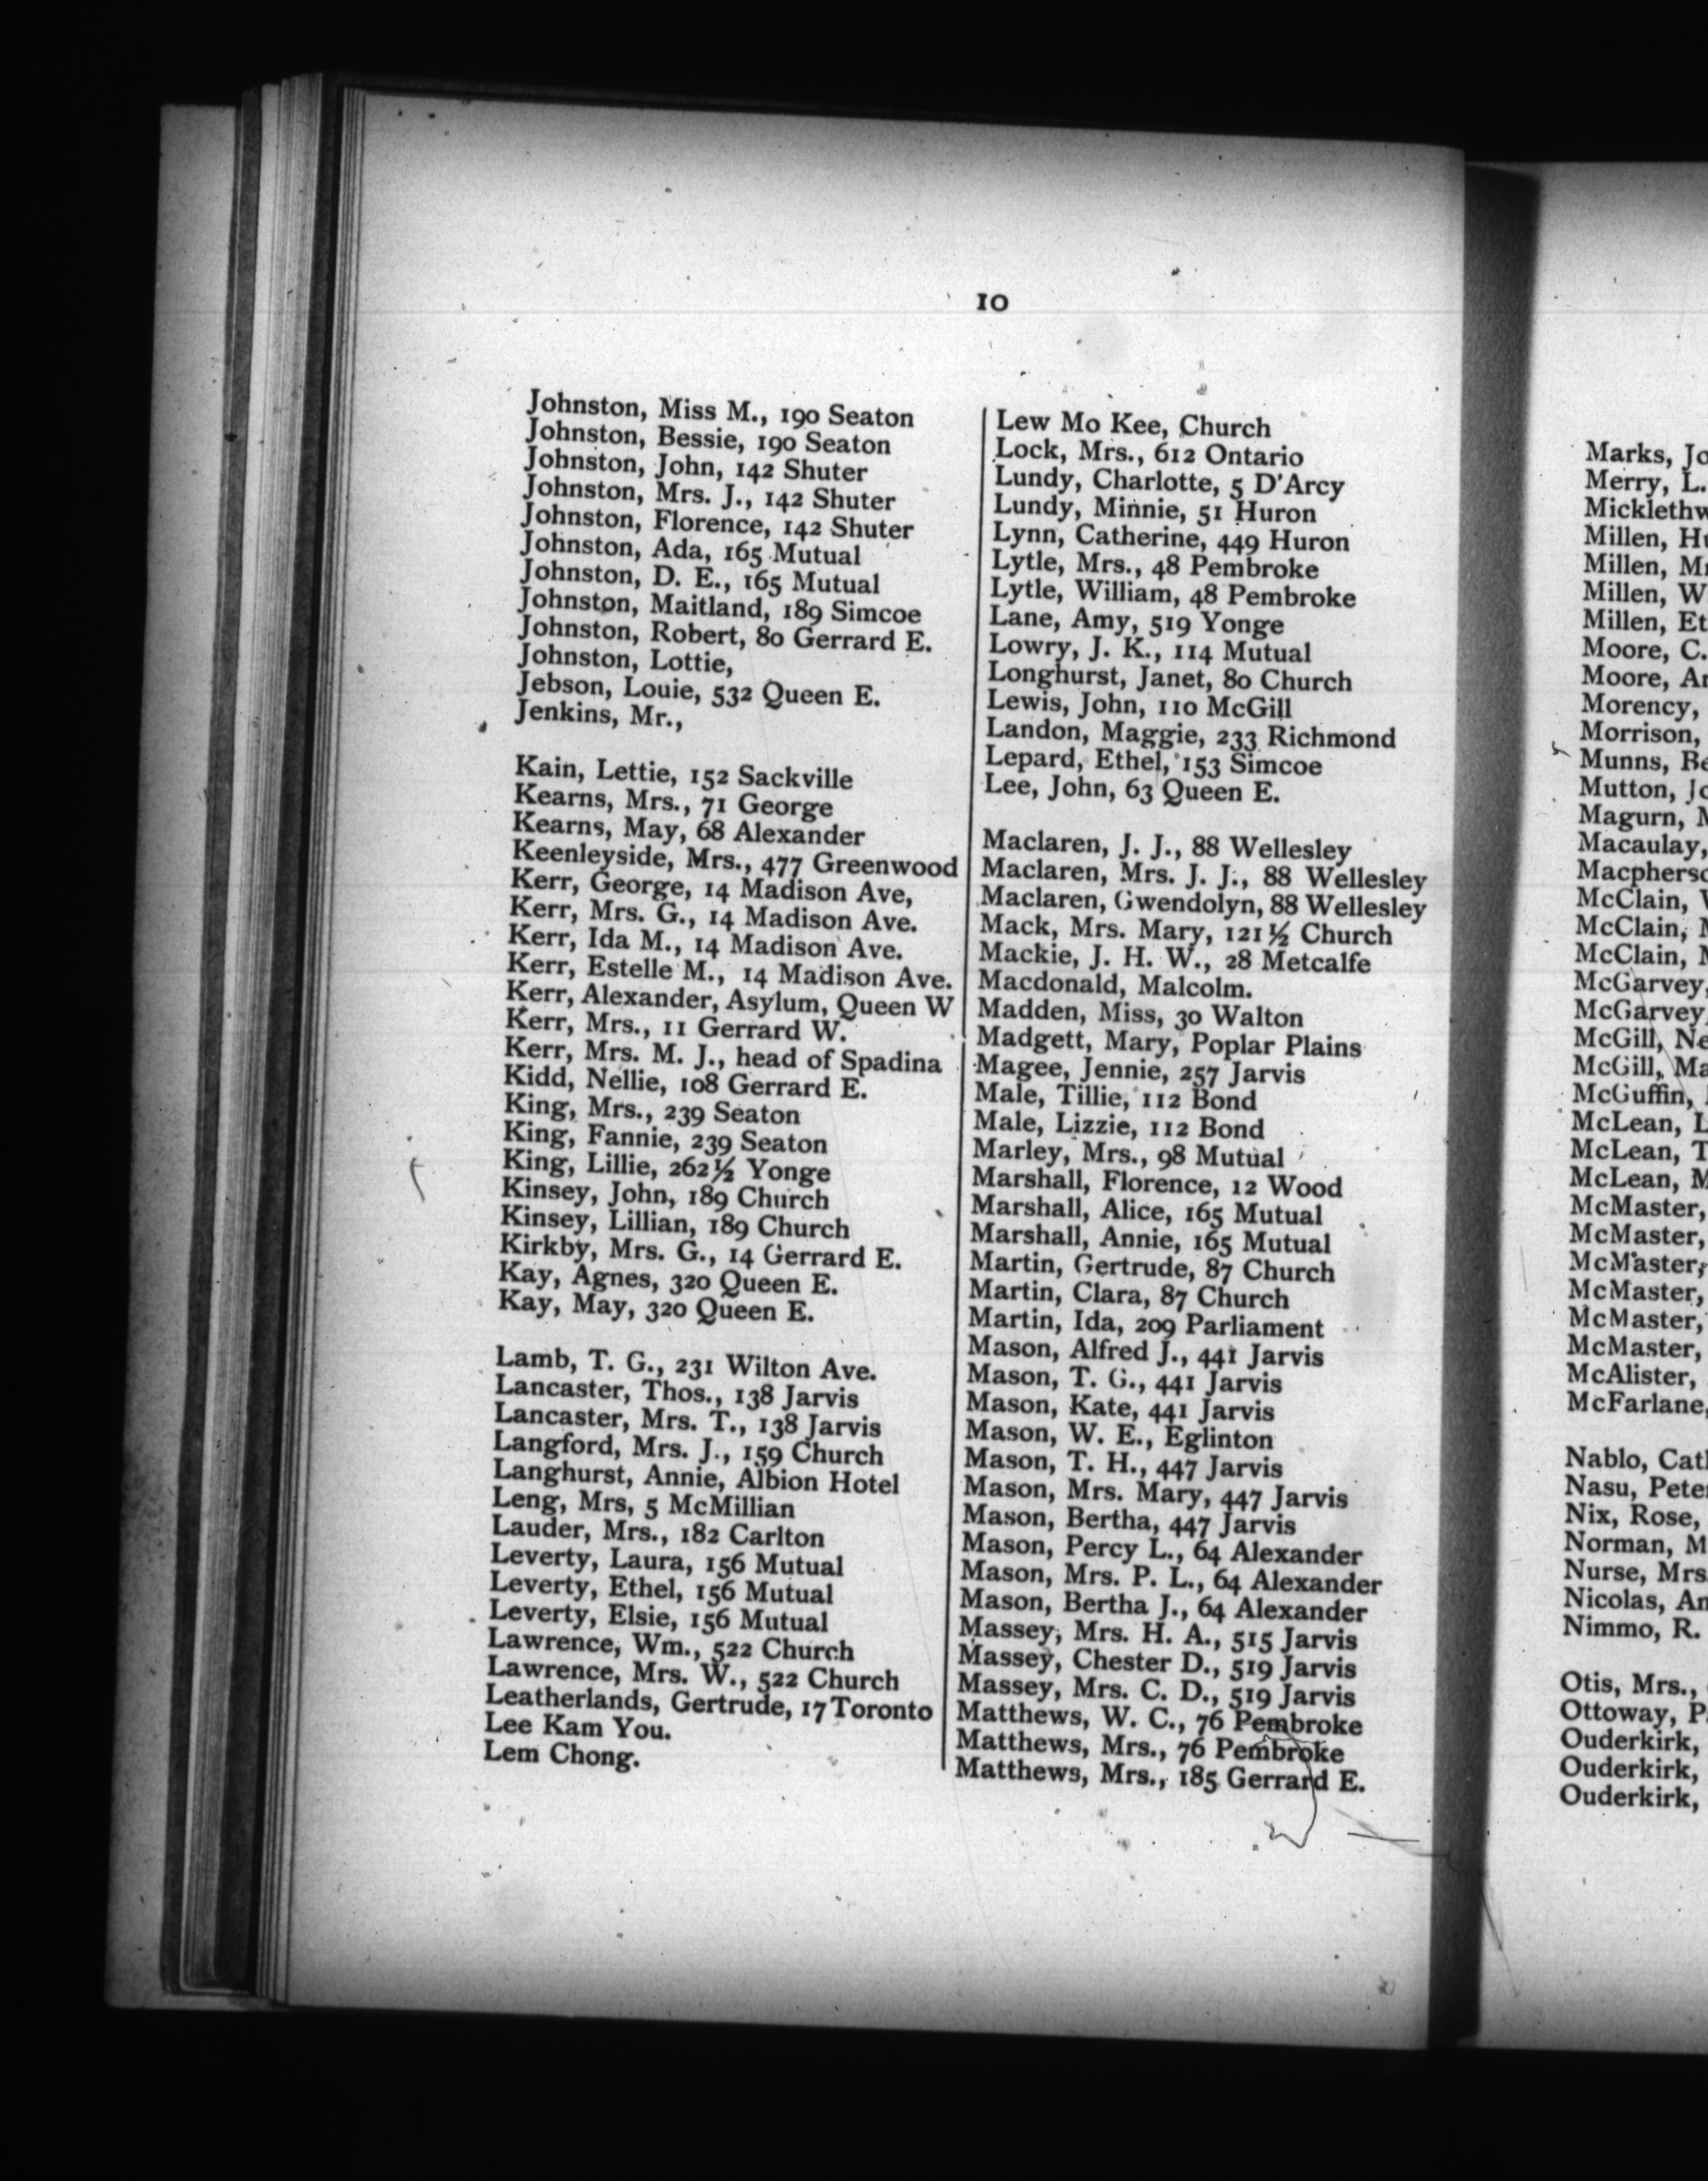 10
Johnston, Miss M., 190 Seaton
Johnston, Bessie, 190 Seaton
Johnston, John, 142 Shuter
Johnston, Mrs. J., 142 Shuter
Johnston, Florence, 142 Shuter
Johnston, Ada, 165 Mutual
Johnston, D. E., 165 Mutual
Johnston, Maitland, 189 Simcoe
Johnston, Robert, 80 Gerrard E.
Johnston, Lottie,
Jebson, Louie, 532 Queen E.
Jenkins, Mr.,
Kain, Lettie, 152 Sackville
Kearns, Mrs., 71 George
Kearns, May, 68 Alexander
Keenleyside, Mrs., 477 Greenwood
Kerr, George, 14 Madison Ave,
Kerr, Mrs. G., 14 Madison Ave.
Kerr, Ida M., 14 Madison Ave.
Kerr, Estelle M., 14 Madison Ave.
Kerr, Alexander, Asylum, Queen W
Kerr, Mrs., 11 Gerrard W.
Kerr, Mrs. M. J., head of Spadina
Kidd, Nellie, 108 Gerrard E.
King, Mrs., 239 Seaton
King, Fannie, 239 Seaton
King, Lillie, 262½ Yonge
Kinsey, John, 189 Church
Kinsey, Lillian, 189 Church
Kirkby, Mrs. G., 14 Gerrard E.
Kay, Agnes, 320 Queen E.
Kay, May, 320 Queen E.
Lamb, T. G., 231 Wilton Ave.
Lancaster, Thos., 138 Jarvis
Lancaster, Mrs. T., 138 Jarvis
Langford, Mrs. J., 159 Church
Langhurst, Annie, Albion Hotel
Leng, Mrs, 5 McMillian
Lauder, Mrs., 182 Carlton
Leverty, Laura, 156 Mutual
Leverty, Ethel, 156 Mutual
Leverty, Elsie, 156 Mutual
Lawrence, Wm., 522 Church
Lawrence, Mrs. W., 522 Church
Leatherlands, Gertrude, 17 Toronto
Lee Kam You.
Lem Chong.
Lew Mo Kee, Church
Lock, Mrs., 612 Ontario
Lundy, Charlotte, 5 D'Arcy
Lundy, Minnie, 51 Huron
Lynn, Catherine, 449 Huron
Lytle, Mrs., 48 Pembroke
Lytle, William, 48 Pembroke
Lane, Amy, 519 Yonge
Lowry, J. K., 114 Mutual
Longhurst, Janet, 80 Church
Lewis, John, 110 McGill
Landon, Maggie, 233 Richmond
Lepard, Ethel, 153 Simcoe
Lee, John, 63 Queen E.
Maclaren, J. J., 88 Wellesley
Maclaren, Mrs. J. J., 88 Wellesley
Maclaren, Gwendolyn, 88 Wellesley
Mack, Mrs. Mary, 121½ Church
Mackie, J. H. W., 28 Metcalfe
Macdonald, Malcolm.
Madden, Miss, 30 Walton
Madgett, Mary, Poplar Plains
Magee, Jennie, 257 Jarvis
Male, Tillie, 112 Bond
Male, Lizzie, 112 Bond
Marley, Mrs., 98 Mutual
Marshall, Florence, 12 Wood
Marshall, Alice, 165 Mutual
Marshall, Annie, 165 Mutual
Martin, Gertrude, 87 Church
Martin, Clara, 87 Church
Martin, Ida, 209 Parliament
Mason, Alfred J., 441 Jarvis
Mason, T. G., 441 Jarvis
Mason, Kate, 441 Jarvis
Mason, W. E., Eglinton
Mason, T. H., 447 Jarvis
Mason, Mrs. Mary, 447 Jarvis
Mason, Bertha, 447 Jarvis
Mason, Percy L., 64 Alexander
Mason, Mrs. P. L., 64 Alexander
Mason, Bertha J., 64 Alexander
Massey, Mrs. H. A., 515 Jarvis
Massey, Chester D., 519 Jarvis
Massey, Mrs. C. D., 519 Jarvis
Matthews, W. C., 76 Pembroke
Matthews, Mrs., 76 Pembroke
Matthews, Mrs., 185 Gerrard E.
Marks,
Merry, L.
Millen,
Millen,
Millen, W
Millen,
Moore, C.
Moore,
Morency,
Morrison,
Munns,
Mutton,
Magurn,
Macaulay,
McClain,
McClain,
McClain,
McGarvey,
McGarvey,
McGill,
McGill,
McGuffin,
McLean,
McLean,
McLean,
McMaster,
McMaster,
McMaster,
McMaster,
McMaster,
McMaster,
McAlister,
McFarlane,
Nablo,
Nasu,
Nix, Rose,
Norman,
Nurse, Mrs
Nicolas,
Nimmo, R.
Otis, Mrs.,
Ottoway,
Ouderkirk,
Ouderkirk,
Ouderkirk,